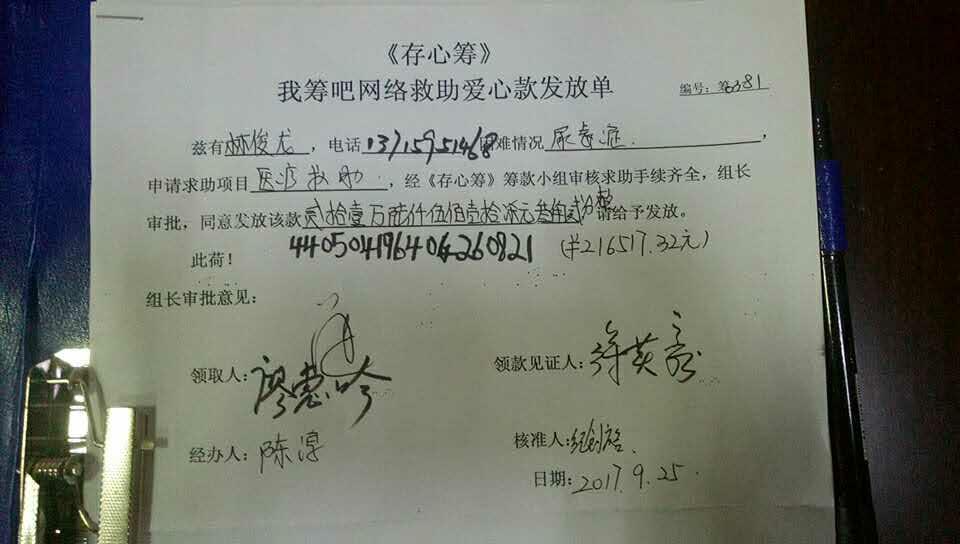 《存心筹》
我筹吧网络救助爱心款发放单
编号：第6381
兹有林俊龙，电话13715951468困难情况尿毒症，
申请求助项目医疗救助，经《存心筹》筹款小组审核求助手续齐全，组长
审批，同意发放该款贰拾壹万陆仟伍佰壹拾柒元叁角贰分整请给予发放。
此荷！ 440504196404260821 (￥216517.32元)
组长审批意见：
领取人： 领款见证人：
经办人：陈淳 核准人：
日期：2017.9.25